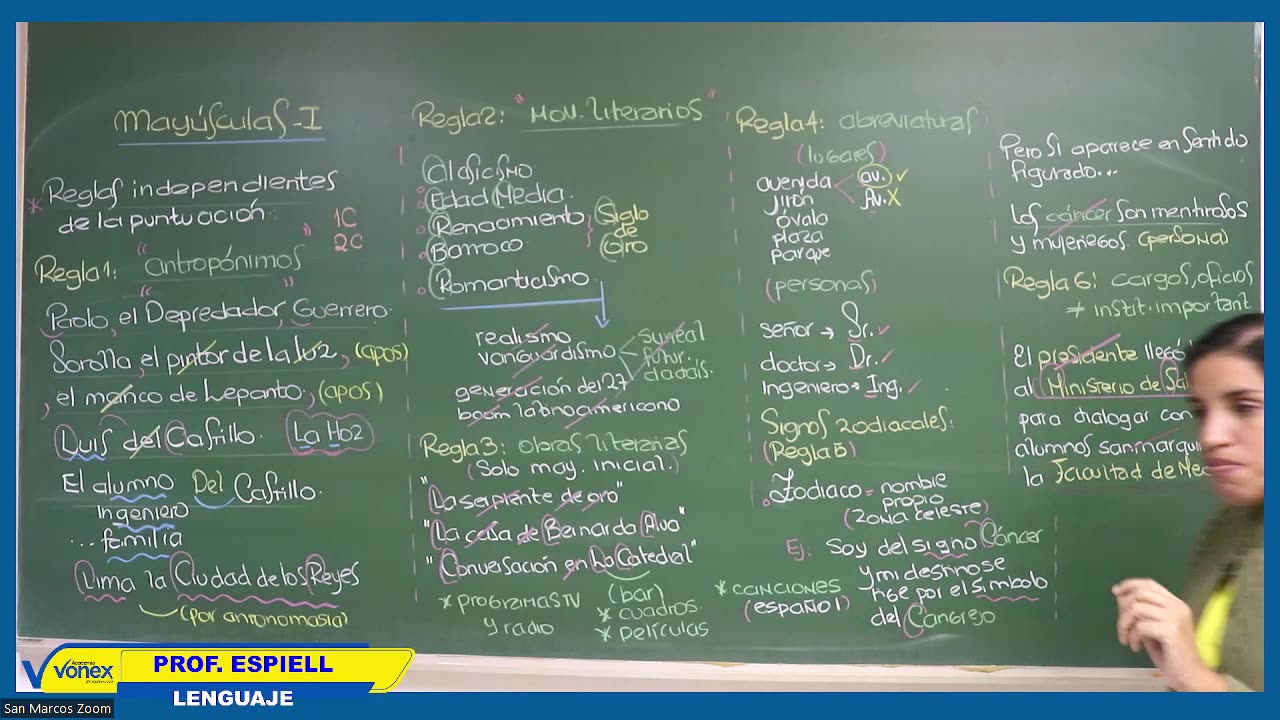 Mayúsculas-I
* Reglas independientes
de la puntuación.
1C
2C
Regla1: "antropónimos"
Paolo, "el Depredador", Guerrero.
Sorolla, el pintor de la luz, (apos)
, el manco de Lepanto, (apos)
Luis del Castillo. La Hoz
El alumno Del Castillo.
ingeniero
... familia
Lima la Ciudad de los Reyes
(por antonomasia)
Regla2: "Mov. literarios"
Clasicismo
Edad Media.
Renacimiento
Barroco
Siglo
de
Oro
Romanticismo
realismo
vanguardismo
surreal
futur.
dadais.
generación del 27
boom latinoamericano
Regla3: obras literarias
(Solo may. inicial.)
"La serpiente de oro"
"La casa de Bernarda Alva"
"Conversación en La Catedral"
(bar)
* programas TV
y radio
* cuadros.
* películas
Regla4: abreviaturas
(lugares)
avenida
av. ✓
Av. X
jirón
óvalo
plaza
parque
(personas)
señor → Sr. ✓
doctor → Dr. ✓
Ingeniero → Ing. ✓
Signos zodiacales:
(Regla5)
Zodiaco = nombre
propio
(zona celeste)
Ej: Soy del signo Cáncer
y mi destino se
rige por el símbolo
del Cangrejo
* canciones
(español)
Pero si aparece en sentido
figurado...
Los cáncer son mentirosos
y mujeriegos (persona)
Regla6: cargos, oficios
≠ instit. important
El presidente llegó
al Ministerio de Sal
para dialogar con
alumnos sanmarqui
la Facultad de Me
Academia
vonex
PROF. ESPIELL
LENGUAJE
San Marcos Zoom